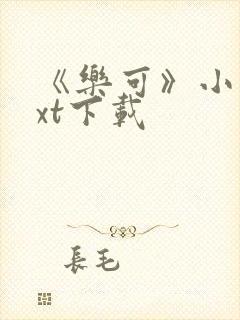 《樂可》小
xt下載
長毛